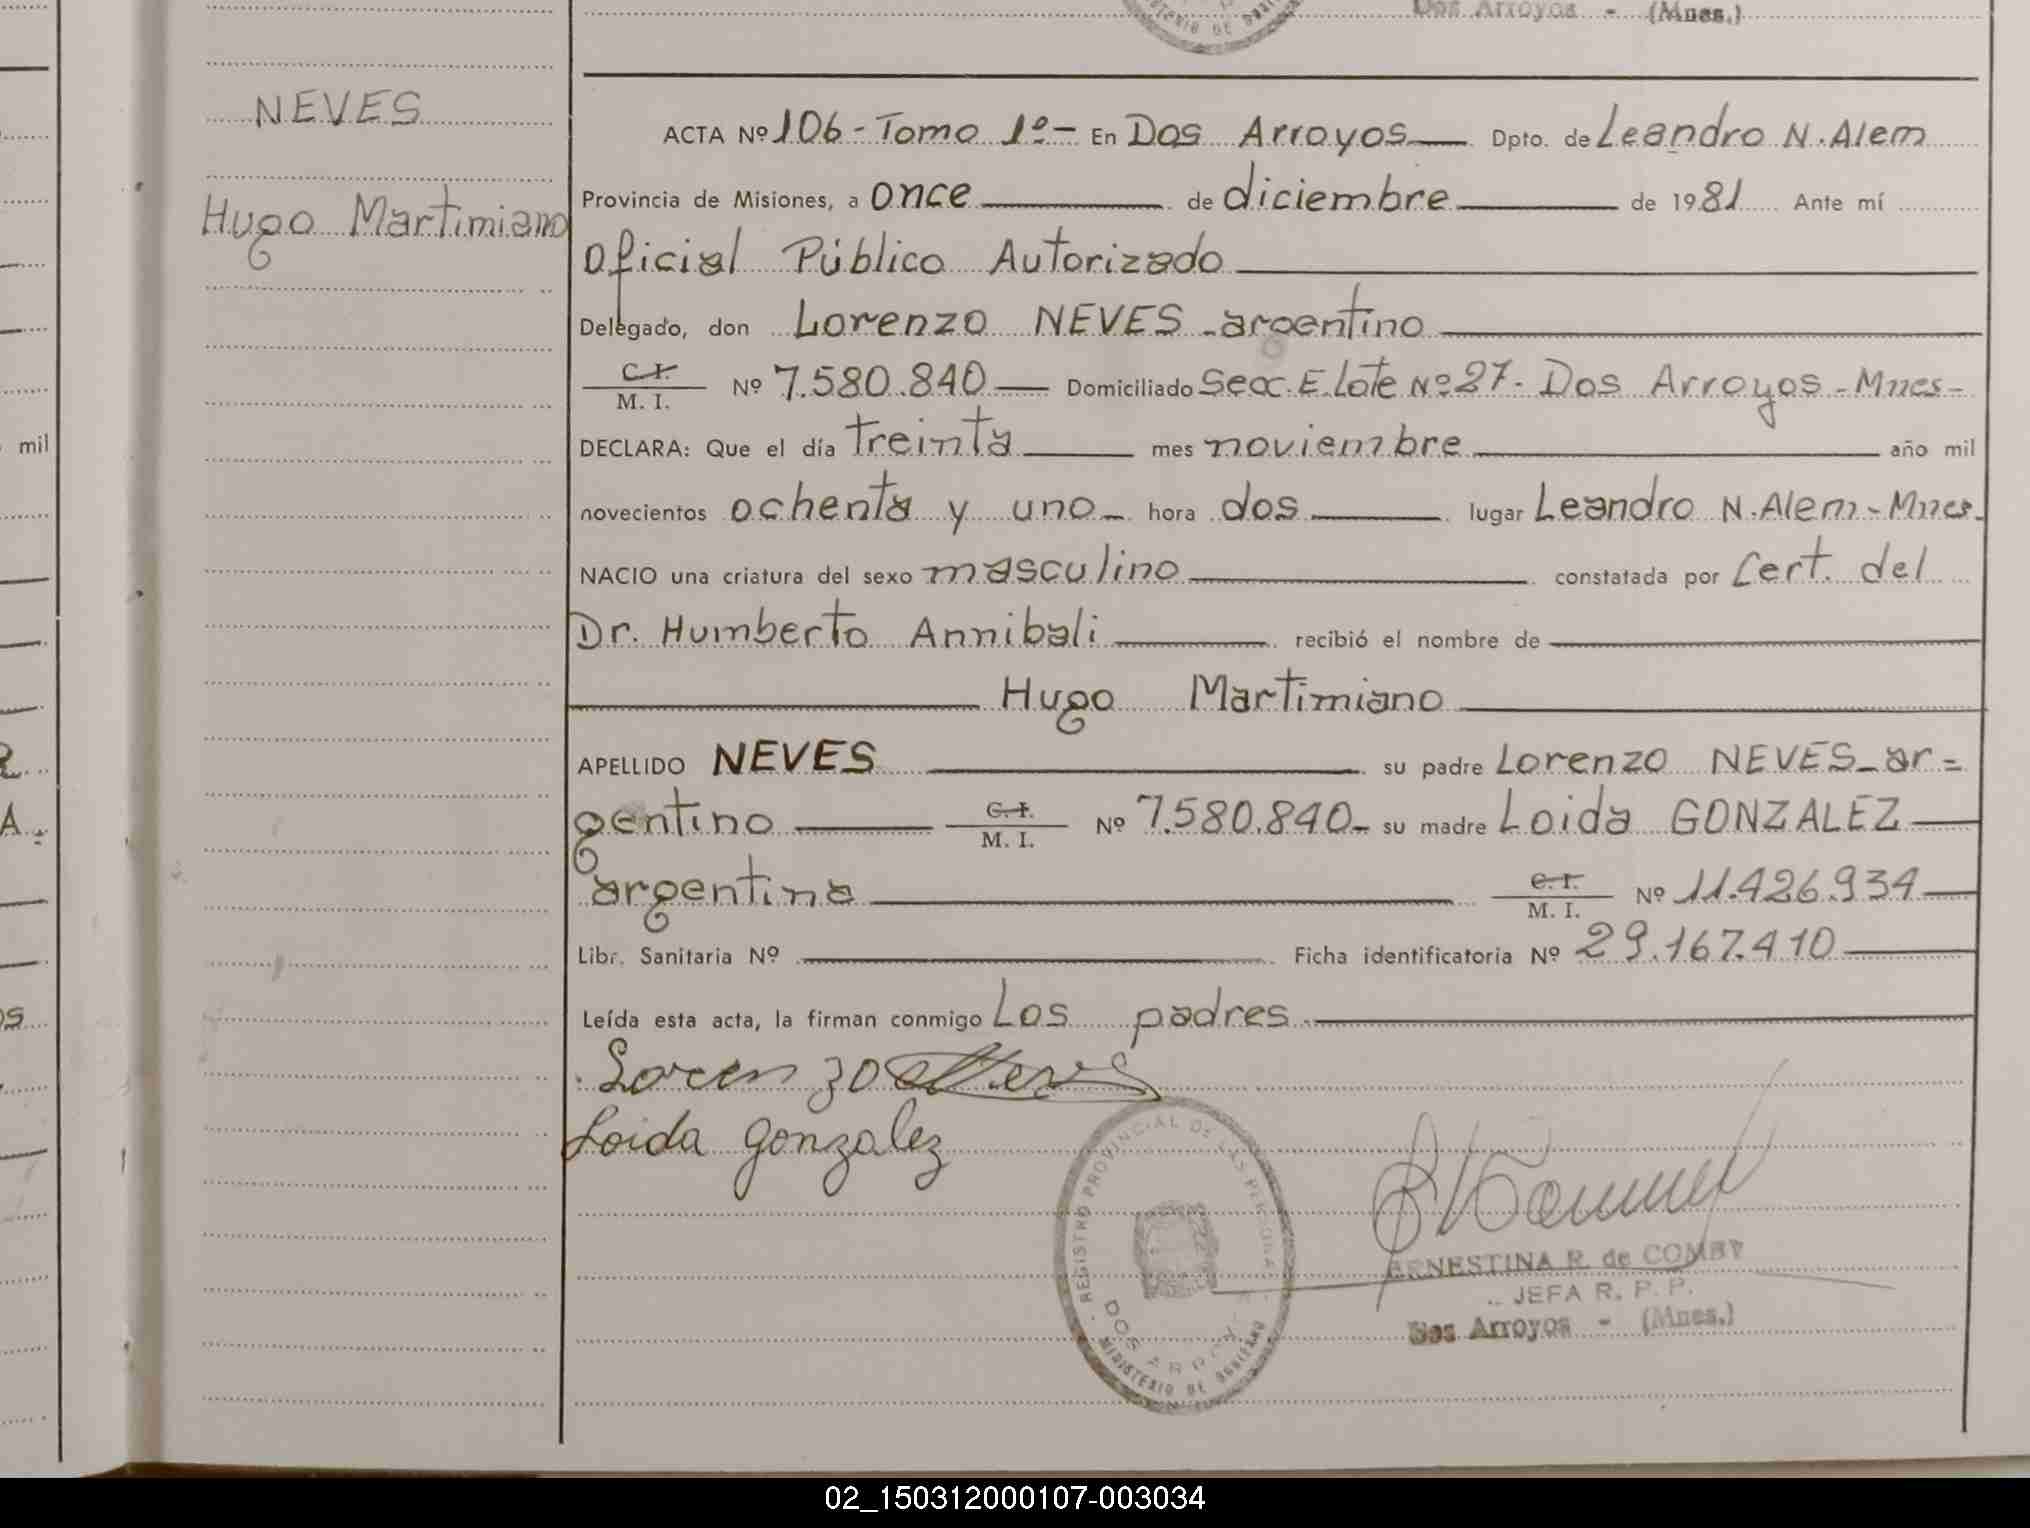 Dos Arroyos - (Mnes.)
NEVES
Hugo Martimiano
mil
ACTA Nº 106 - Tomo 1º - En Dos Arroyos Dpto. de Leandro N. Alem
Provincia de Misiones, a once de diciembre de 1981 Ante mí
Oficial Público Autorizado
Delegado, don Lorenzo NEVES - argentino
C.I.
M. I. Nº 7.580.840 Domiciliado Secc. E. Lote Nº 27 - Dos Arroyos - Mnes -
DECLARA: Que el día treinta mes noviembre año mil
novecientos ochenta y uno hora dos lugar Leandro N. Alem - Mnes.
NACIO una criatura del sexo masculino constatada por Cert. del
Dr. Humberto Annibali recibió el nombre de
Hugo Martimiano
APELLIDO NEVES su padre Lorenzo NEVES - ar=
gentino C.I. M. I. Nº 7.580.840 - su madre Loida GONZALEZ
argentina C.I. M. I. Nº 11.426.934
Libr. Sanitaria Nº Ficha identificatoria Nº 29.167.410
Leída esta acta, la firman conmigo Los padres
Lorenzo Neves
Loida Gonzalez
REGISTRO PROVINCIAL DE LAS PERSONAS
DOS ARROYOS
MINISTERIO DE GOBIERNO
ERNESTINA R. de COMBY
JEFA R. P. P.
Dos Arroyos - (Mnes.)
02_150312000107-003034